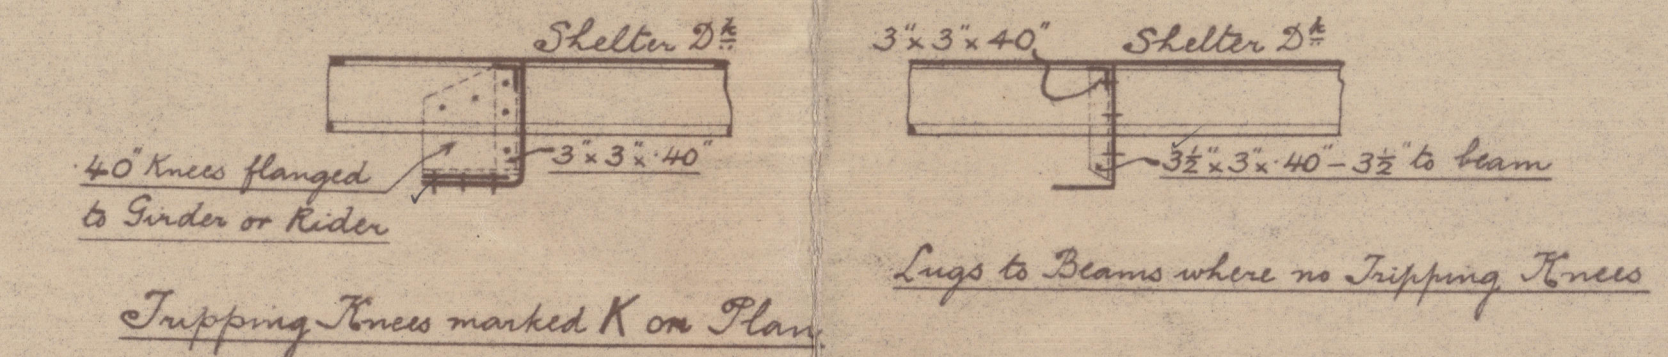 Shelter Dk
3"x 3"x ·40"
·40" Knees flanged
to Girder or Rider
Tripping Knees marked K on Plan.
3"x 3"x 40"
Shelter Dk
3½"x 3"x ·40 – 3½" to beam
Lugs to Beams where no Tripping Knees